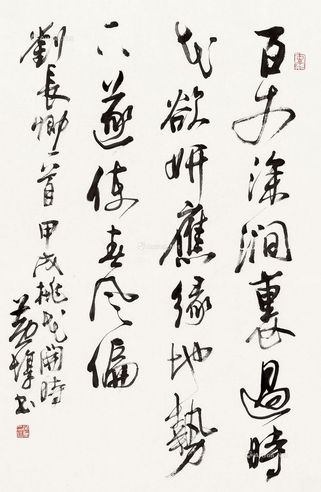 百丈深澗裏過時
花欲妍應緣地勢
下遂使春風偏
劉長卿一首甲戌桃花開時
黄惇书